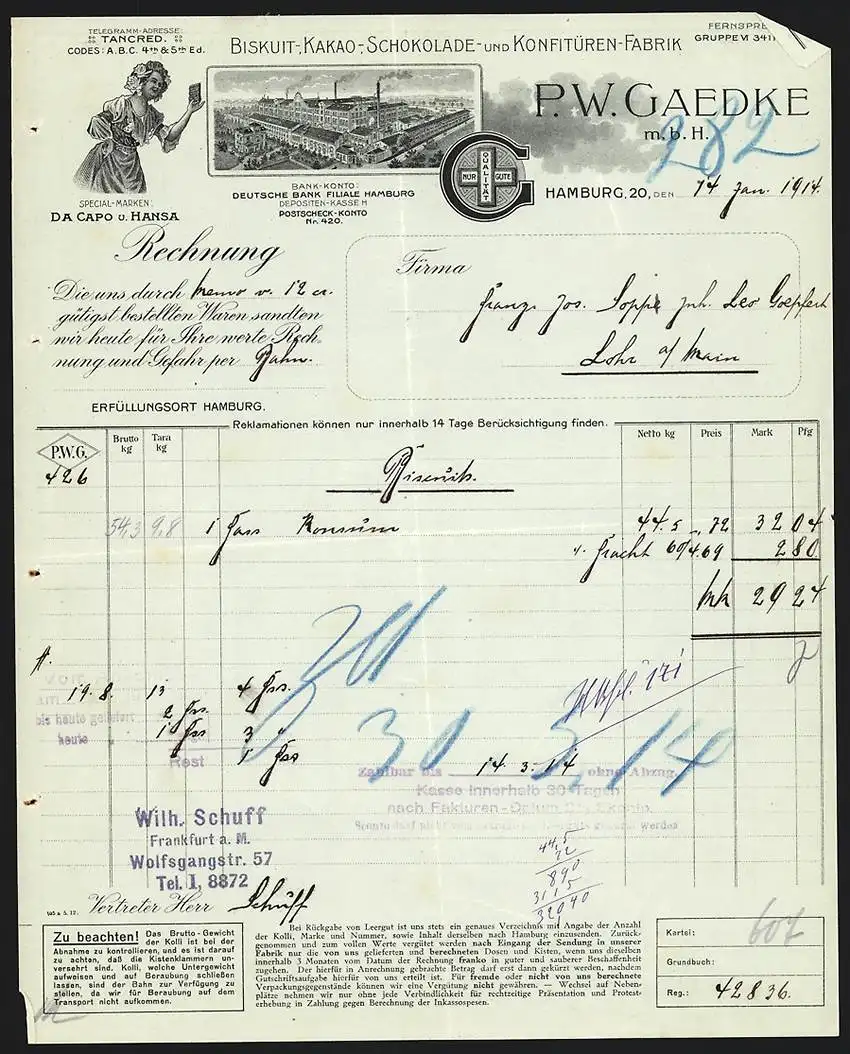 TELEGRAMM-ADRESSE:
TANCRED.
CODES: A.B.C. 4th & 5th Ed.
BISKUIT-, KAKAO-, SCHOKOLADE- UND KONFITÜREN-FABRIK
FERNSPRE
GRUPPE VI 341
P.W. GAEDKE
m. b. H.
282
NUR QUALITÄT GUTE
SPECIAL-MARKEN:
DA CAPO U. HANSA
BANK-KONTO:
DEUTSCHE BANK FILIALE HAMBURG
DEPOSITEN-KASSE H
POSTSCHECK-KONTO
Nr. 420.
HAMBURG, 20, DEN 14 Jan. 1914.
Rechnung
Die uns durch Memo v. 12 cr.
gütigst bestellten Waren sandten
wir heute für Ihre werte Rech-
nung und Gefahr per Bahn.
Firma
Franz Jos. Soppe Inh. Leo Goepfert
Lohr a/Main
ERFÜLLUNGSORT HAMBURG.
Reklamationen können nur innerhalb 14 Tage Berücksichtigung finden.
P.W.G. Brutto kg Tara kg Netto kg Preis Mark Pfg
426 Biscuits.
54,3 9,8 1 Fass Konsum 44.5 ,72 32 04
Fracht 69 4.69 2 80
Mk 29 24
19. 8. 13 4
2
bis heute geliefert
1 3 "
heute
1
Rest
30 3,14
Zahlbar bis 14. 3. 14 ohne Abzug.
Kasse innerhalb 30 Tagen
nach Fakturen-Datum
Wilh. Schuff
Frankfurt a. M.
Wolfsgangstr. 57
Tel. I, 8872
44,5
72
890
3115
32040
Vertreter Herr Schuff
Zu beachten! Das Brutto-Gewicht
der Kolli ist bei der
Abnahme zu kontrollieren, und es ist darauf
zu achten, daß die Kistenklammern un-
versehrt sind. Kolli, welche Untergewicht
aufweisen und auf Beraubung schließen
lassen, sind der Bahn zur Verfügung zu
stellen, da wir für Beraubung auf dem
Transport nicht aufkommen.
Bei Rückgabe von Leergut ist uns stets ein genaues Verzeichnis mit Angabe der Anzahl
der Kolli, Marke und Nummer, sowie Inhalt derselben nach Hamburg einzusenden. Zurück-
genommen und zum vollen Werte vergütet werden nach Eingang der Sendung in unserer
Fabrik nur die von uns gelieferten und berechneten Dosen und Kisten, wenn uns dieselben
innerhalb 3 Monaten vom Datum der Rechnung franko in guter und sauberer Beschaffenheit
zugehen. Der hierfür in Anrechnung gebrachte Betrag darf erst dann gekürzt werden, nachdem
Gutschriftsaufgabe hierfür von uns erteilt ist. Für fremde oder nicht von uns berechnete
Verpackungsgegenstände können wir eine Vergütung nicht gewähren. — Wechsel auf Neben-
plätze nehmen wir nur ohne jede Verbindlichkeit für rechtzeitige Präsentation und Protest-
erhebung in Zahlung gegen Berechnung der Inkassospesen.
Kartei: 607
Grundbuch:
Reg.: 42836.